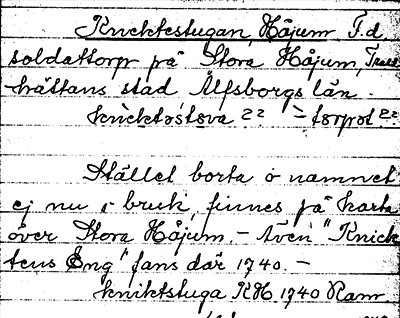 Knicktestugan, Håjum F. d.
soldattorp på Stora Håjum, Troll
hättans stad Älfsborgs län.
knicktəstəva 22 = torpət 22
Stället borta o namnet
ej nu i bruk, finnes på karta
över Stora Håjum. - Även "Knick
tens Eng" fans där 1740. -
kniktstuga KH 1740 Ranr